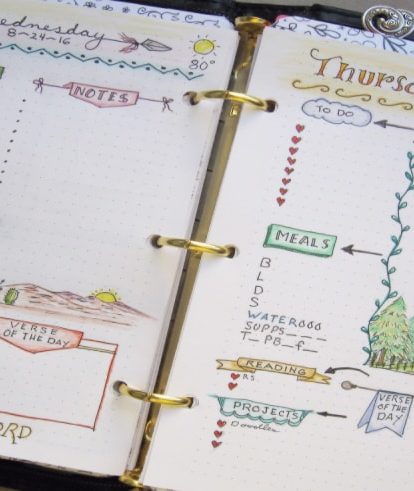 ednesday
8-24-16
80°
NOTES
VERSE
OF THE DAY
ORD
Thursd
TO DO
MEALS
B
L
D
S
WATER
SUPPS
T_ PB_f_
READING
RS
PROJECTS
Doodles
VERSE
OF THE
DAY